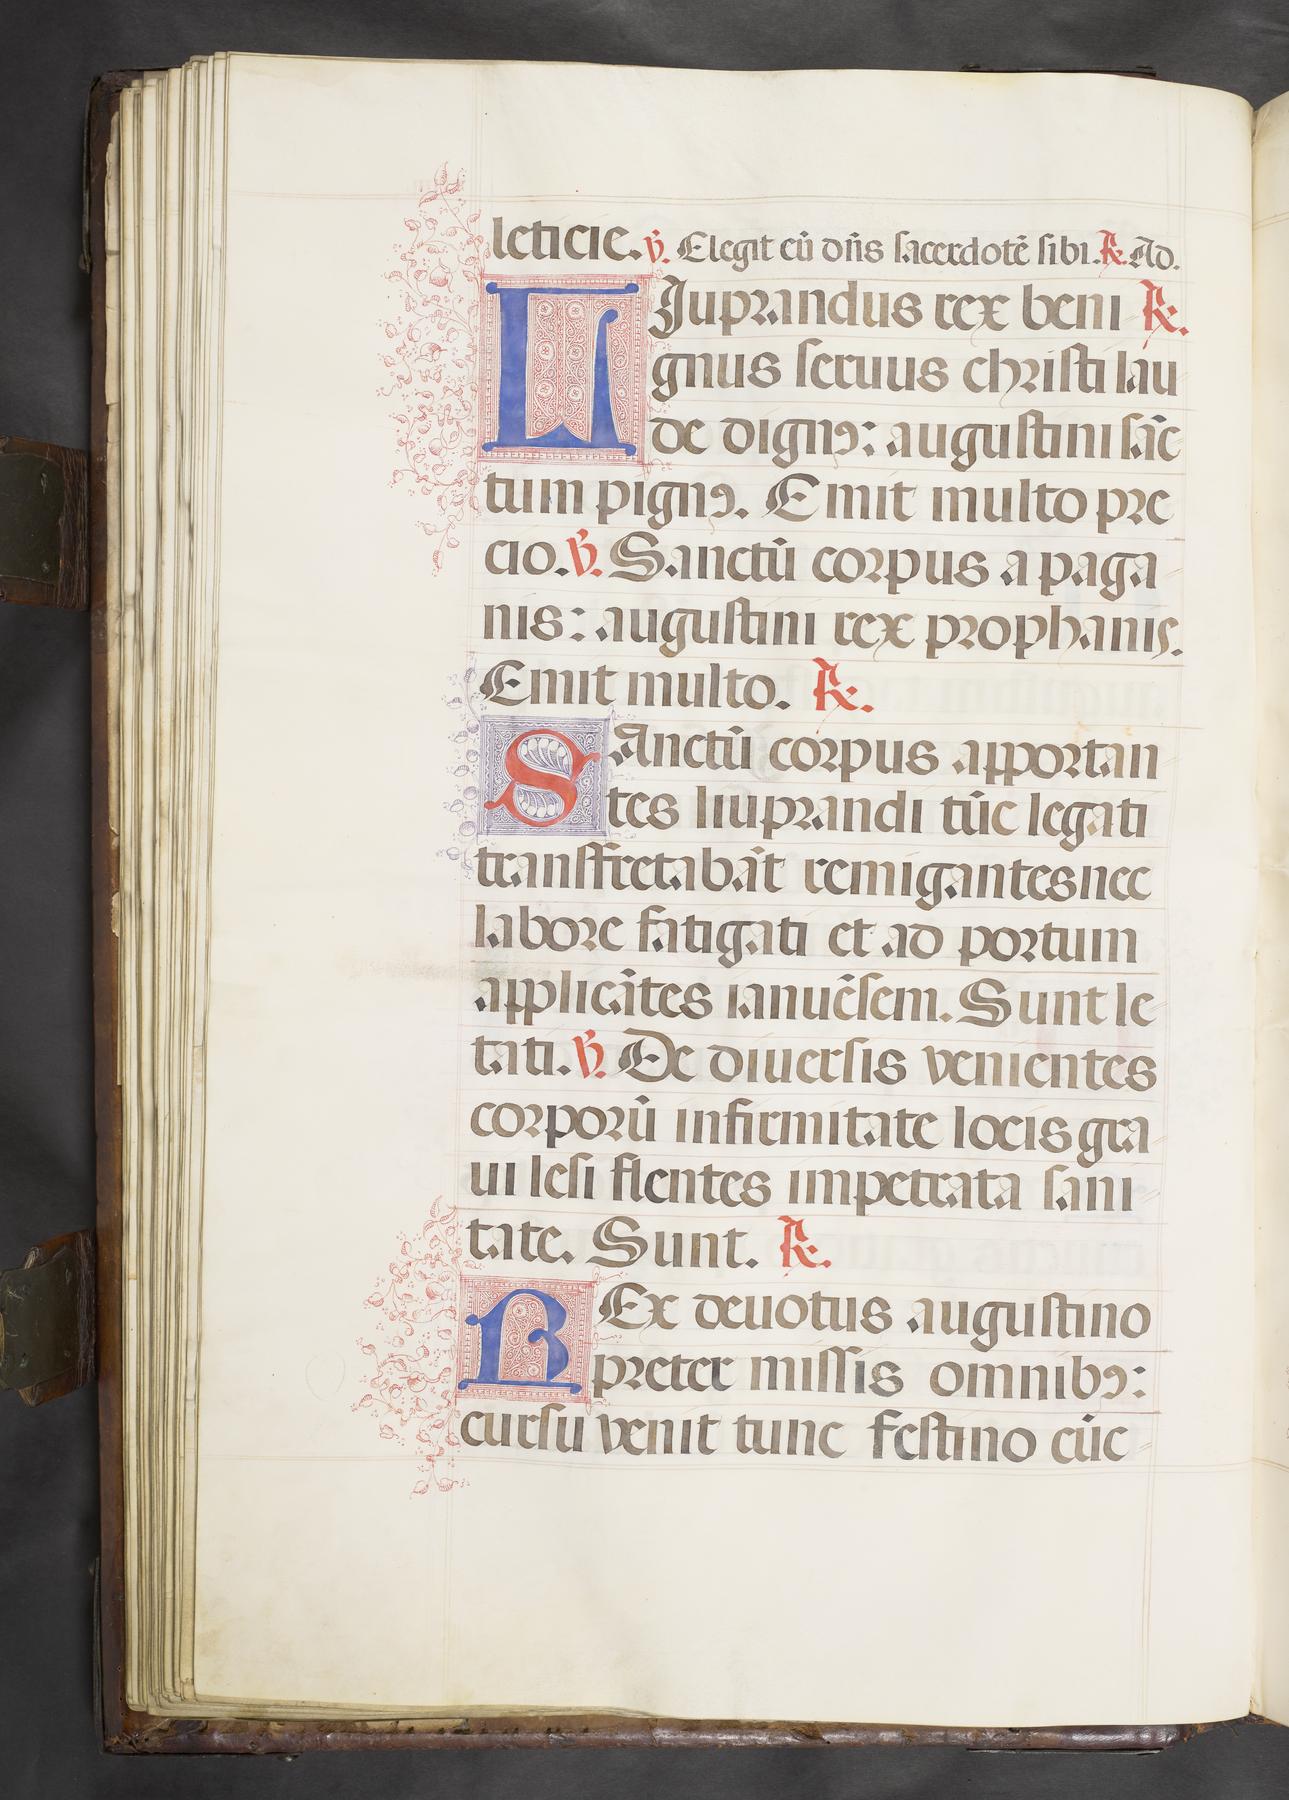 leticie. ℣. Elegit eū dn̄s sacerdotē sibi. ℟. Ad.
LJuprandus rex beni ℟.
gnus seruus christi lau
de dignꝯ: augustini sāc
tum pignꝯ. Emit multo pre
cio. ℣. Sanctū corpus a paga
nis: augustini rex prophanis.
Emit multo. ℟.
SAnctū corpus apportan
tes liuprandi tūc legati
transfretabāt remigantes nec
labore fatigati et ad portum
applicātes ianuēsem. Sunt le
tati. ℣. De diuersis venientes
corporū infirmitate locis gra
ui lesi flentes impetrata sani
tate. Sunt. ℟.
REx deuotus augustino
preter missis omnibꝯ:
cursu venit tunc festino cūc